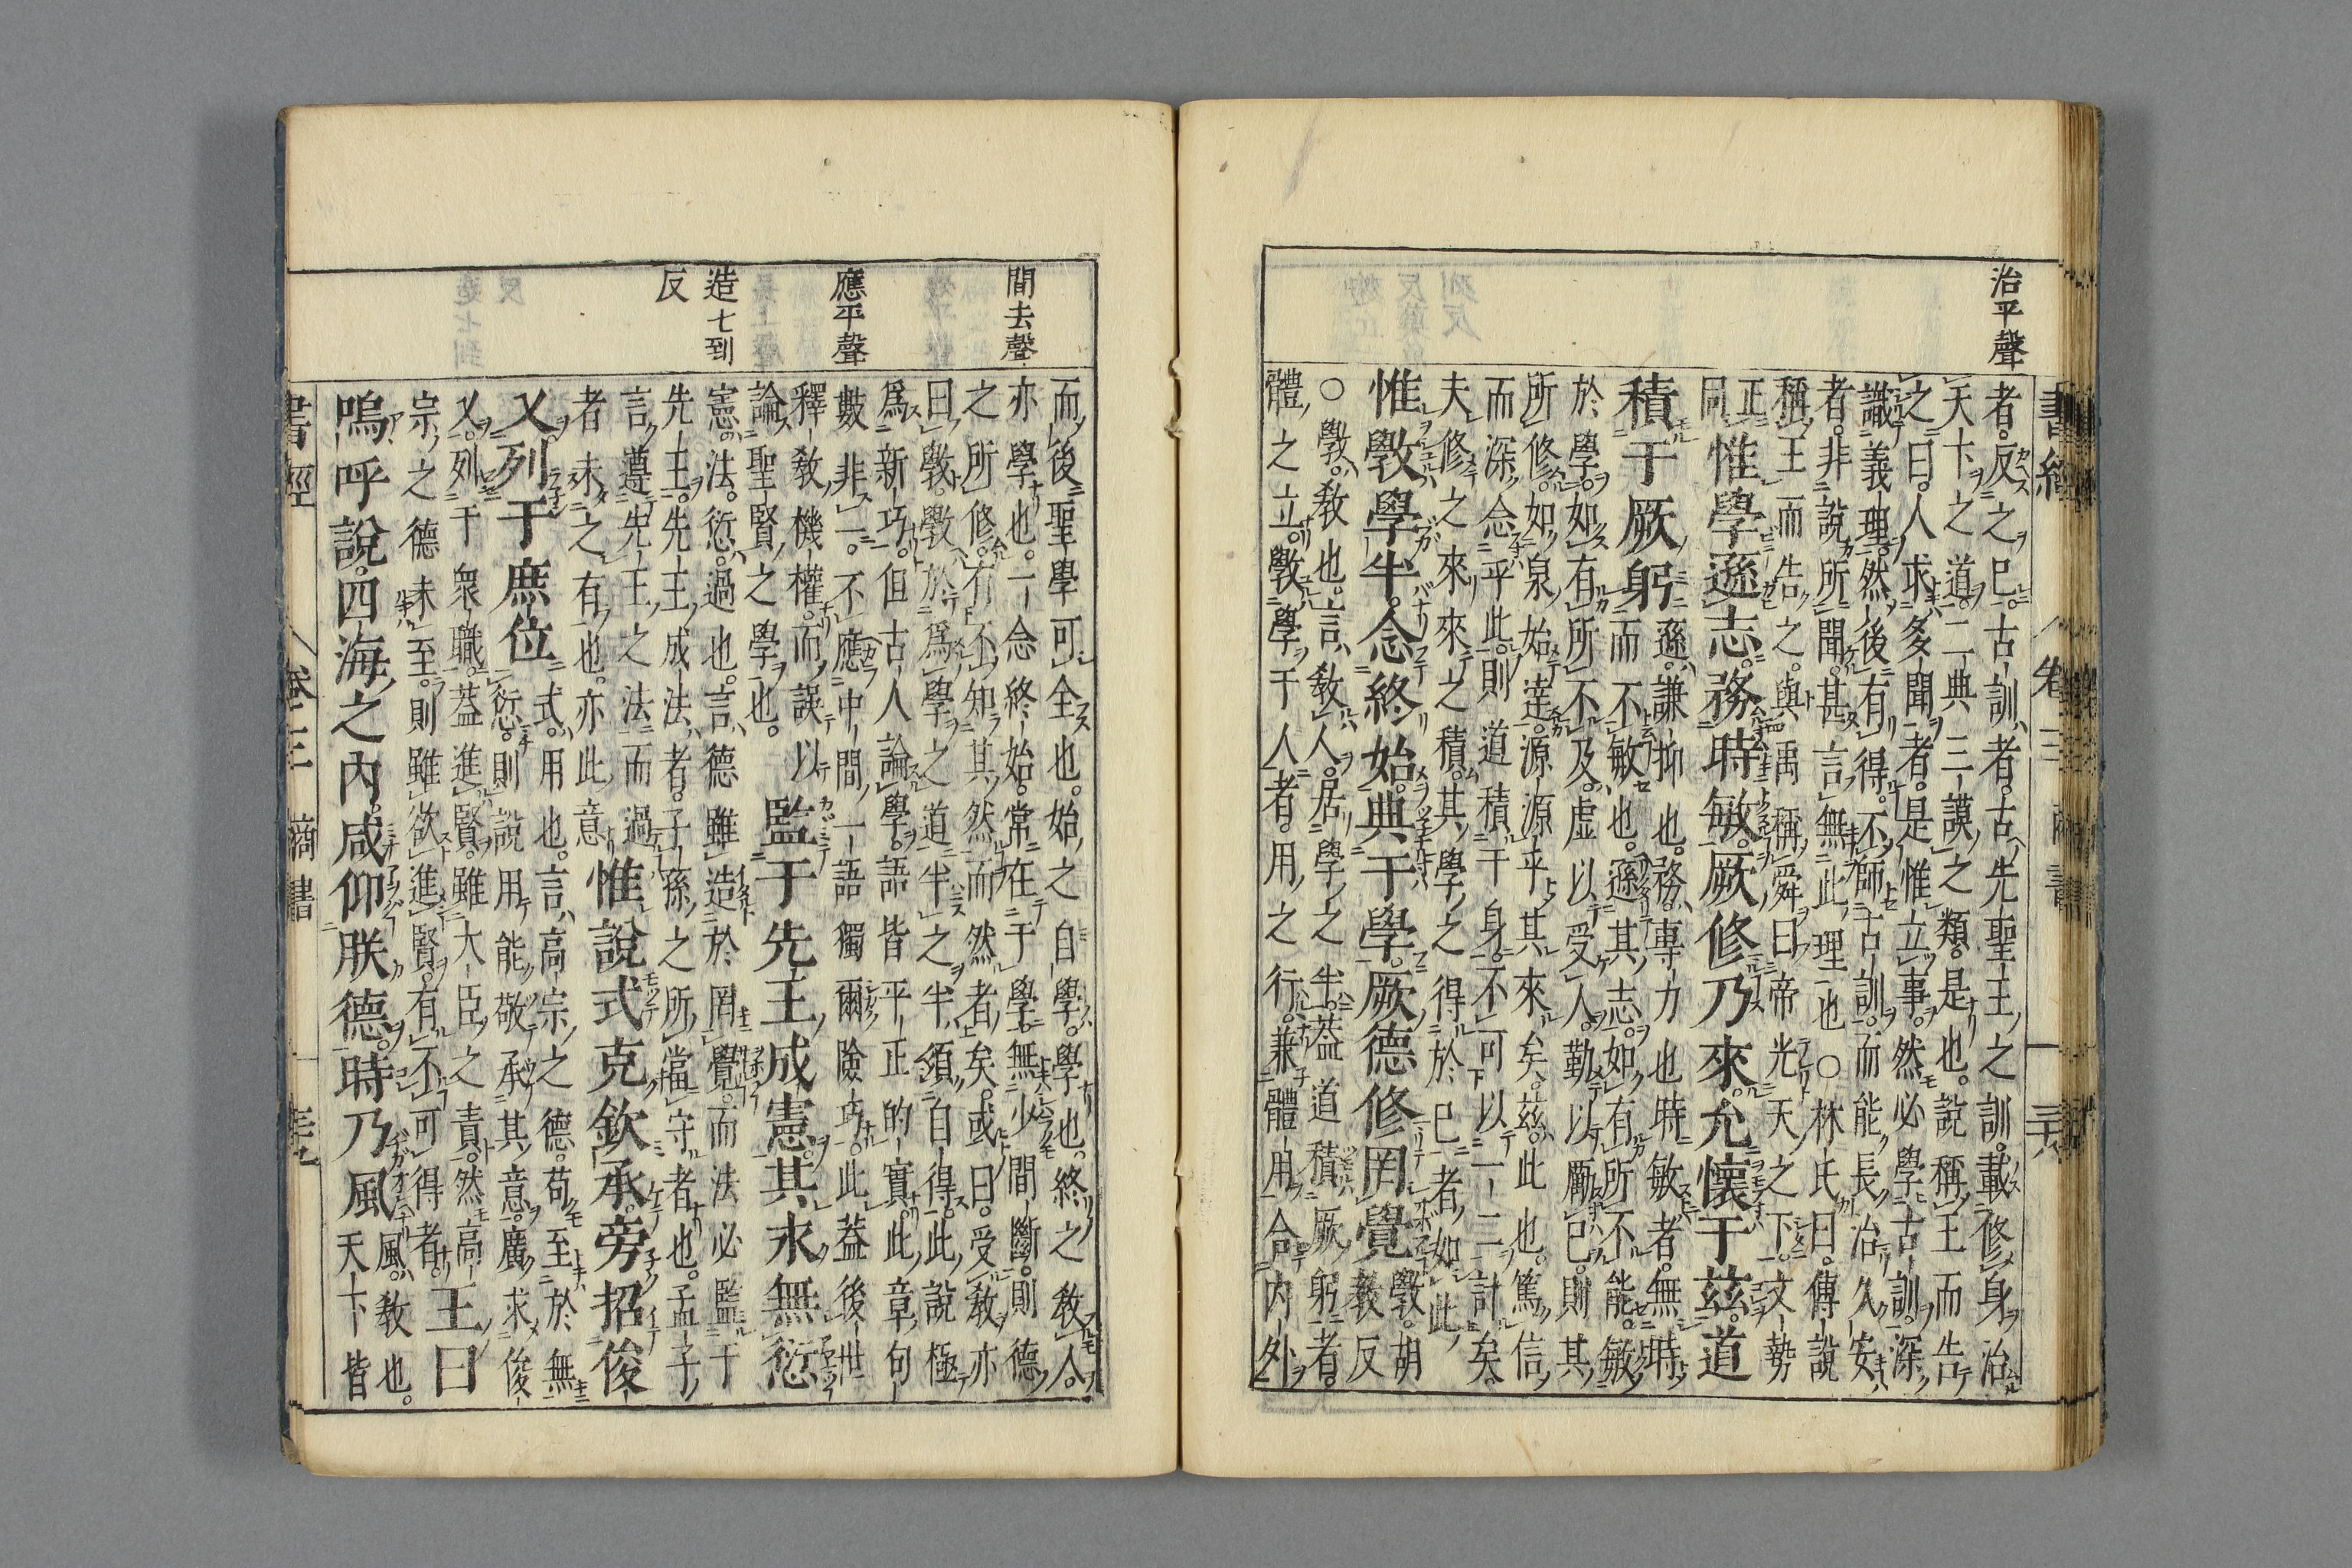 治平聲
書經 卷三 商書
者。反之巳。古訓者。古先聖王之訓。載修身治
天下之道。二典三謨之類。是也。說稱王而告
之曰。人求多聞者。是惟立事。然必學古訓。深
識義理。然後有得。不師古訓。而能長治久安
者。非說所聞。甚言無此理也○林氏曰。傳說
稱王而告之。與禹稱舜曰帝光天之下。文勢
正同
惟學遜志。務時敏。厥修乃來。允懷于茲。道
積于厥躬
遜。謙抑也。務。專力也時敏者。無時
而不敏也。遜其志。如有所不能。敏
於學。如有所不及。虛以受人。勤以厲巳。則其
所修。如泉始達。源源乎其來矣。茲。此也。篤信
而深念乎此。則道積于身。不可以一二計矣。
夫修之來。來之積。其學之得於巳者。如此。
惟斆學半。念終始。典于學。厥德修罔覺
斆。胡
教反
○斆。教也。言教人。居學之半。蓋道積厥躬者。
體之立。斆學于人者。用之行。兼體用。合內外
間去聲
應平聲
造七到
反
而後聖學可全也。始之自學。學也。終之教人。
亦學也。一念終始。常在于學。無少間斷。則德
之所修。有不知其然而然者矣。或曰。受教亦
曰斆。斆於爲學之道半之。半須自得。此說極
爲新巧。但古人論學。語皆平正的實。此章句
數非一。不應中間一語獨爾險巧。此蓋後世
釋教機權。而誤以
論聖賢之學也。
監于先王成憲。其永無愆
憲。法。愆。過也。言德雖造於罔覺。而法必監于
先王。先王成法者。子孫之所當守者也。孟子
言遵先王之法而過
者未之有也。亦此意
惟說式克欽承。旁招俊
乂列于庶位
式。用也。言高宗之德。苟至於無
愆。則說用能敬承其意。廣求俊
乂。列于衆職。蓋進賢。雖大臣之責。然高
宗之德未至。則雖欲進賢。有不可得者。
王曰
嗚呼說。四海之內。咸仰朕德。時乃風
風。教也。
天下皆
書經 卷三 商書